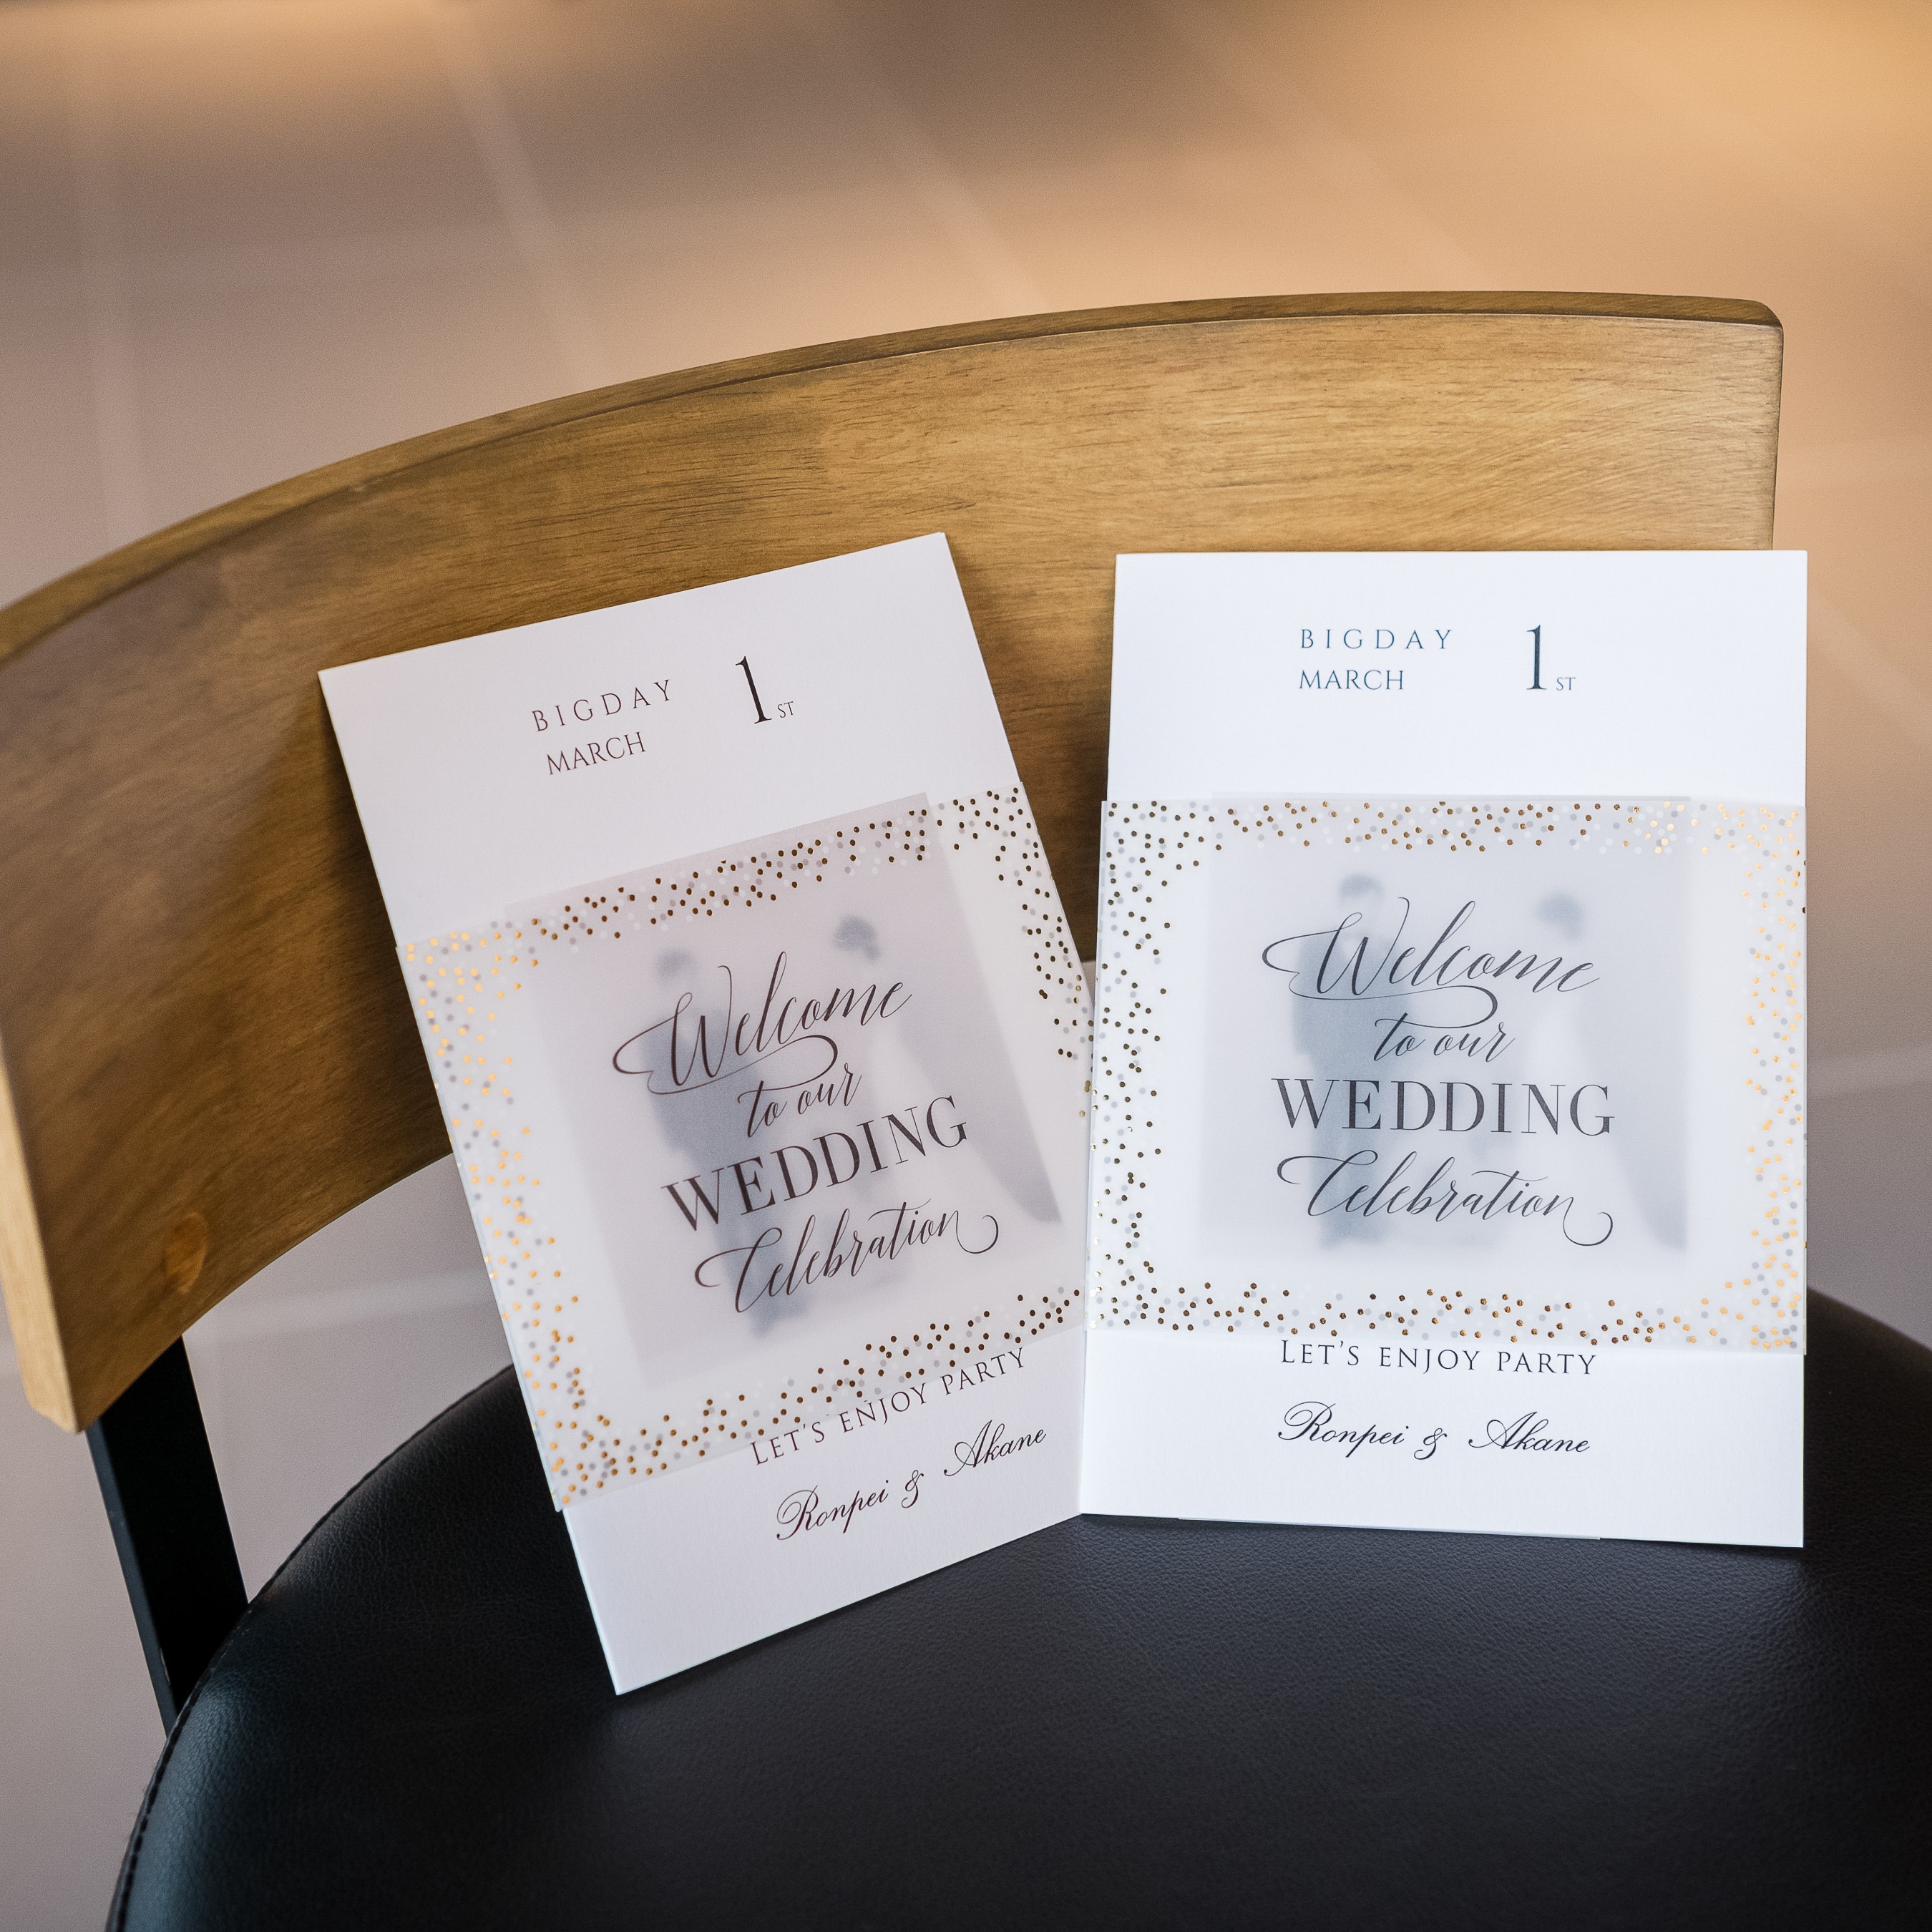 BIGDAY 1ST
MARCH
Welcome
to our
WEDDING
Celebration
LET'S ENJOY PARTY
Ronpei & Akane
BIGDAY 1ST
MARCH
Welcome
to our
WEDDING
Celebration
LET'S ENJOY PARTY
Ronpei & Akane